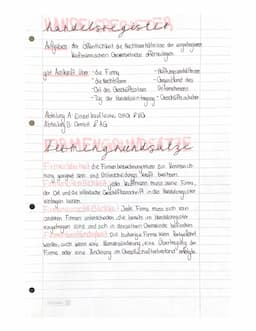 HANDELSREGISTER
handelsregister
Aufgaben: der Öffentlichkeit die Rechtsverhältnisse der eingetragenen
kaufmännischen Gewerbebetriebe offenzulegen
gibt Auskunft über: - die Firma - Haftungsverhältnisse
- die Rechtsform - Gegenstand des
- Ort des Geschäftssitzes Unternehmens
- Tag der Handelseintragung - Geschäftsinhaber
Abteilung A: Einzelkaufleute, OHG, KG
Abteilung B: GmbH, AG
FIRMENGRUNDSÄTZE
firmengrundsätze
die Firmenbezeichnung muss zur Kennzeich-
nung geeignet sein und Unterscheidungskraft besitzen.
jeder Kaufmann muss seine Firma,
der Ort und die inländische Geschäftsanschrift in das Handelsregister
eintragen lassen.
Jede Firma muss sich von
anderen Firmen unterscheiden, die bereits im Handelsregister
eingetragen sind und sich in derselben Gemeinde befinden.
Die bisherige Firma kann fortgeführt
werden, auch wenn eine Namensänderung, eine Übertragung der
Firma oder eine Änderung im Gesellschafterbestand erfolgte.